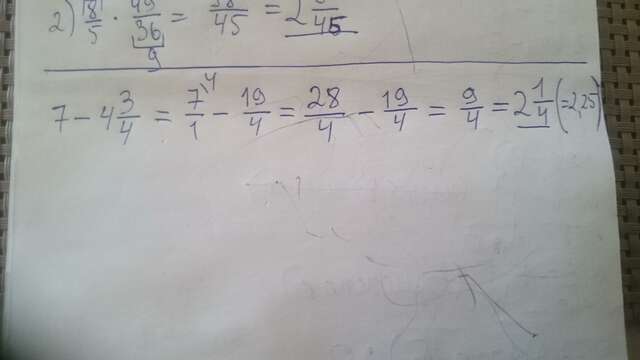 2) 8/5 · 49/36 = 98/45 = 2 8/45
9
7 - 4 3/4 = 7/1 \4 - 19/4 = 28/4 - 19/4 = 9/4 = 2 1/4 (=2,25)